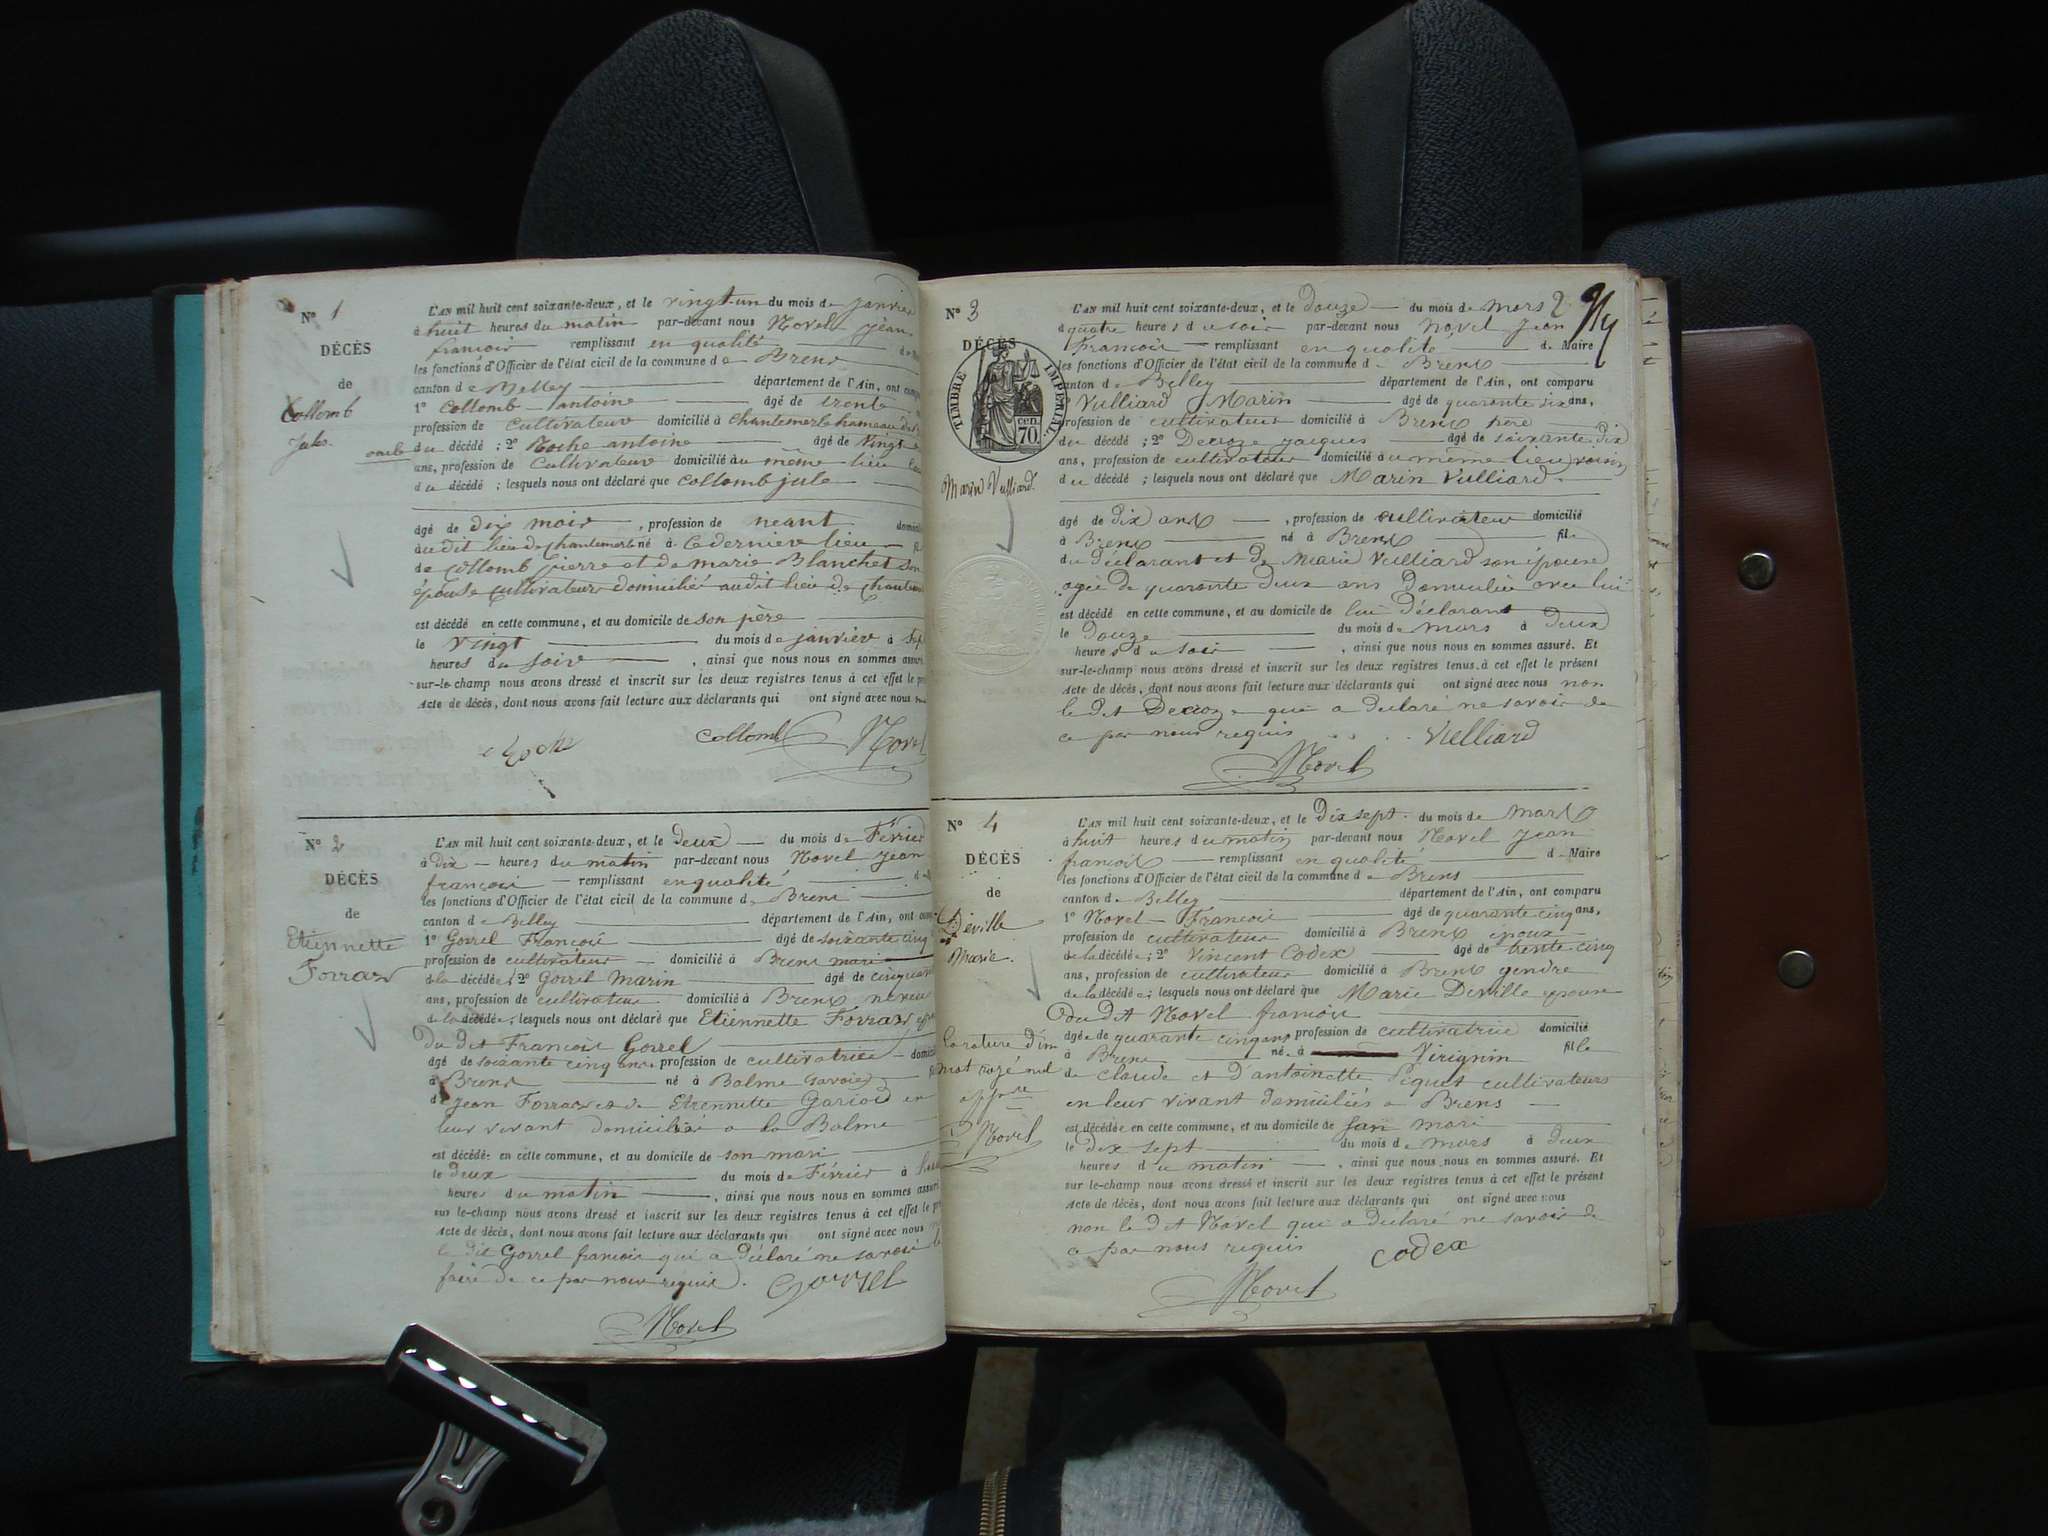 N° 1
DÉCÈS
de
Collomb
Jules
L'AN mil huit cent soixante-deux, et le vingt-un du mois de janvier
à huit heures du matin par-devant nous Novel Jean
françois remplissant en qualité
les fonctions d'Officier de l'état cicil de la commune de Brens
canton de Belley département de l'Ain, ont comparu
1° Collomb antoine âgé de trente
profession de Cultivateur domicilié à Chantemerle hameau de
oncle du décédé ; 2° Roche antoine âgé de vingt
ans, profession de Cultivateur domicilié au même lieu
du décédé ; lesquels nous ont déclaré que Collomb jule
âgé de dix mois , profession de neant
audit lieu de Chantemerle né à ce dernier lieu
de Collomb pierre et de marie Blanchet son
épouse Cultivateurs domicilié audit lieu de
est décédé en cette commune, et au domicile de son père
le vingt du mois de janvier à sept
heures du soir , ainsi que nous nous en sommes assuré
sur-le-champ nous avons dressé et inscrit sur les deux registres tenus à cet effet le
Acte de décès, dont nous avons fait lecture aux déclarants qui ont signé avec nous
Roche Collomb Novel
N° 2
DÉCÈS
de
Etiennette
Forraz
L'AN mil huit cent soixante-deux, et le deux du mois de Février
à dix heures du matin par-devant nous Novel Jean
françois remplissant en qualité
les fonctions d'Officier de l'état cicil de la commune de Brens
canton de Belley département de l'Ain, ont
1° Gorrel François âgé de soixante cinq
profession de cultivateur domicilié à Brens mari
de la décédée ; 2° Gorrel Marin âgé de
ans, profession de cultivateur domicilié à Brens neveu
de la décédée ; lesquels nous ont déclaré que Etiennette Forraz
du dit François Gorrel
âgé de soixante cinq ans profession de cultivatrice
à Brens né à Balme savoie
de Jean Forraz et de Etiennette Gariod en
leur vivant domiciliés a la Balme
est décédé en cette commune, et au domicile de son mari
le deux du mois de Février à
heures du matin , ainsi que nous nous en sommes assuré
sur le-champ nous avons dressé et inscrit sur les deux registres tenus à cet effet le
Acte de décès, dont nous avons fait lecture aux déclarants qui ont signé avec nous
le dit Gorrel francois qui a déclaré ne savoir le
faire de ce par nous requis. Gorrel
Novel
N° 3
DÉCÈS
TIMBRE IMPERIAL
70 cen.
Marin Vulliard
L'AN mil huit cent soixante-deux, et le douze du mois de mars 2
à quatre heures du soir par-devant nous Novel Jean
françois remplissant en qualité de Maire
les fonctions d'Officier de l'état cicil de la commune de Brens
canton de Belley département de l'Ain, ont comparu
1° Vulliard Marin âgé de quarante six ans,
profession de cultivateur domicilié à Brens père
du décédé ; 2° Decroze jacques âgé de soixante dix
ans, profession de cultivateur domicilié au même lieu voisin
du décédé ; lesquels nous ont déclaré que Marin Vulliard
âgé de dix ans , profession de cultivateur domicilié
à Brens né à Brens fils
du déclarant et de Marie Vulliard son épouse
agée de quarante deux ans domiciliée avec lui
est décédé en cette commune, et au domicile de lui déclarant
le douze du mois de mars à deux
heures du soir , ainsi que nous nous en sommes assuré. Et
sur-le-champ nous avons dressé et inscrit sur les deux registres tenus à cet effet le présent
Acte de décès, dont nous avons fait lecture aux déclarants qui ont signé avec nous non
le dit Decroze qui a déclaré ne savoir de
ce par nous requis Vulliard
Novel
N° 4
DÉCÈS
de
Deville
Marie.
mot rayé nul
Novel
L'AN mil huit cent soixante-deux, et le Dix sept du mois de mars
à huit heures du matin par-devant nous Novel Jean
françois remplissant en qualité de Maire
les fonctions d'Officier de l'état cicil de la commune de Brens
canton de Belley département de l'Ain, ont comparu
1° Novel François âgé de quarante cinq ans,
profession de cultivateur domicilié à Brens époux
de la décédée ; 2° Vincent Codex âgé de trente cinq
ans, profession de cultivateur domicilié à Brens gendre
de la décédée ; lesquels nous ont déclaré que Marie Deville épouse
du dit Novel françois
âgée de quarante cinq ans profession de cultivatrice domicilié
à Brens né à Virignin fille
de claude et d'antoinette Piquet cultivateurs
en leur vivant domiciliés a Brens
est décédée en cette commune, et au domicile de son mari
le dix sept du mois de mars à deux
heures du matin , ainsi que nous nous en sommes assuré. Et
sur le-champ nous avons dressé et inscrit sur les deux registres tenus à cet effet le présent
Acte de décès, dont nous avons fait lecture aux déclarants qui ont signé avec nous
non le dit Novel qui a déclaré ne savoir de
ce par nous requis codex
Novel